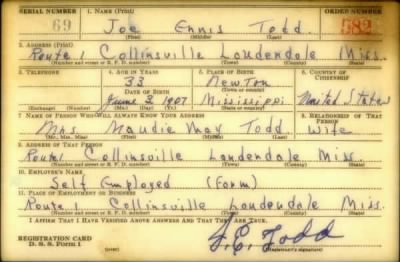 SERIAL NUMBER 1. NAME (Print) ORDER NUMBER
69 Joe Ennis Todd 582
(First) (Middle) (Last)
2. ADDRESS (Print)
Route 1 Collinsville Lauderdale Miss.
(Number and street or R. F. D. number) (Town) (County) (State)
3. TELEPHONE 4. AGE IN YEARS 5. PLACE OF BIRTH 6. COUNTRY OF CITIZENSHIP
33 Newton
DATE OF BIRTH (Town or county)
June 2 1907 Mississippi United States
(Exchange) (Number) (Mo.) (Day) (Yr.) (State or country)
7. NAME OF PERSON WHO WILL ALWAYS KNOW YOUR ADDRESS 8. RELATIONSHIP OF THAT PERSON
Mrs. Maudie May Todd Wife
(Mr., Mrs., Miss) (First) (Middle) (Last)
9. ADDRESS OF THAT PERSON
Route 1 Collinsville Lauderdale Miss.
(Number and street or R. F. D. number) (Town) (County) (State)
10. EMPLOYER'S NAME
Self Employed (Farm)
11. PLACE OF EMPLOYMENT OR BUSINESS
Route 1 Collinsville Lauderdale Miss.
(Number and street or R. F. D. number) (Town) (County) (State)
I AFFIRM THAT I HAVE VERIFIED ABOVE ANSWERS AND THAT THEY ARE TRUE.
REGISTRATION CARD
D. S. S. Form 1 J. E. Todd
(Registrant's signature)